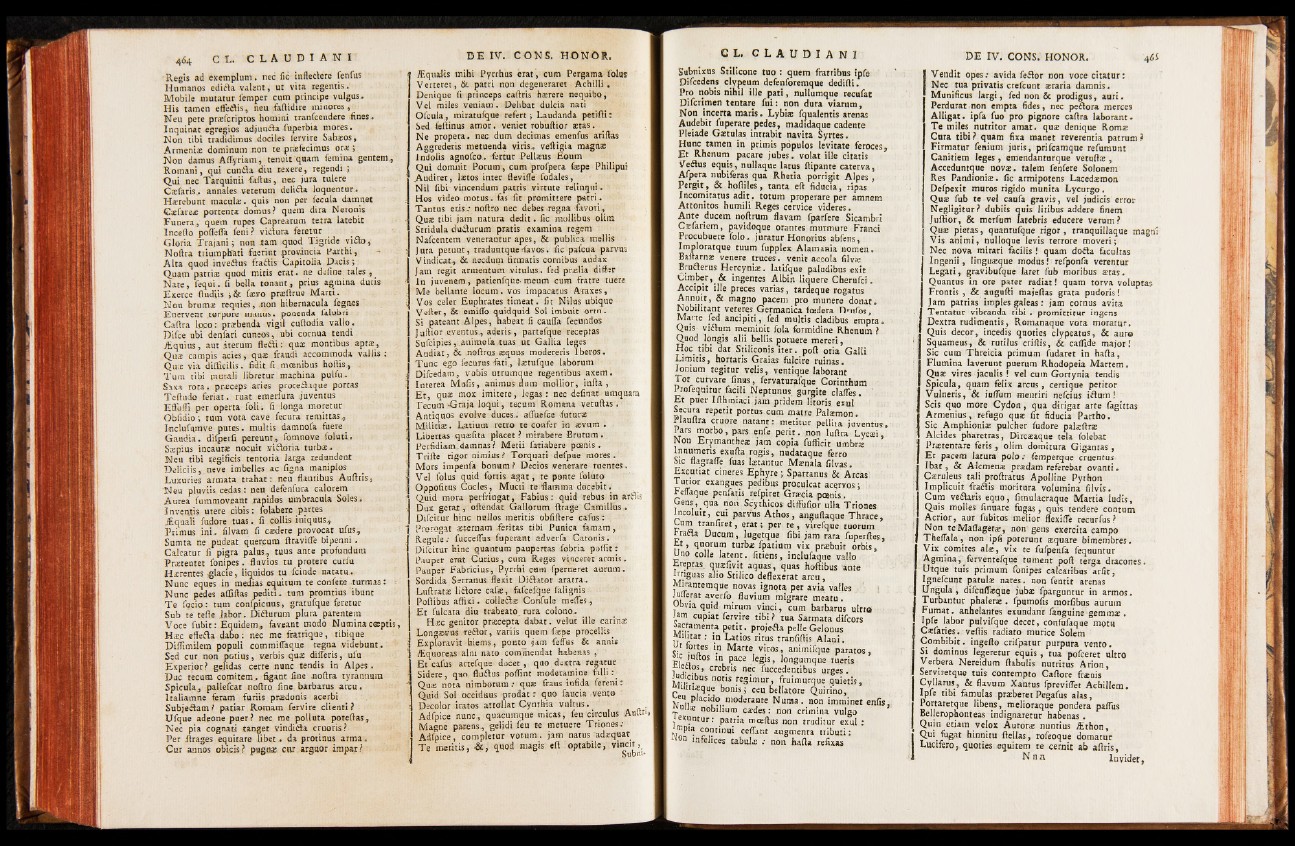 464 CL. CLAUDIANI
Regis ad exemplum. nec sic inflectere sensus
Humanos edicta valent, ut vita regentis.
Mobile mutatur semper cum principe vulgus.
His tamen effectis, neu fastidire minores,
Neu pete præscriptos homini transcendere fines.
Inquinat egregios adjuncta superbia mores.
Non tibi tradidimus dociles servire Sabæos,
Armeniæ dominum non te præfecimus oræ;
Non damus Assyriam, tenuit quam femina gentem,
Romani, qui cuncta diu rexere, regendi;
Qui nec Tarquinii fastus, nec jura tulere
Cæsaris. annales veterum delicta loquentur.
Hærebunt maculæ. quis non per secula damnet
Cæsareæ portenta domus? quem dira Neronis
Funera, quem rupes Caprearum tetra latebit
Incesto possessa seni? victura feretur
Gloria Trajani; non tam quod Tigride victo,
Nostra triumphati fuerint provincia Parthi,
Alta quod invectus fractis Capitolia Dacis;
Quam patriæ quod mitis erat. ne desine tales,
Nate, sequi. si bella tonant, prius agmina duris
Exerce studiis, & sævo præstrue Marti.
Non brumæ requies, non hibernacula segnes
Enervent torpore manus. ponenda salubri
Castra loco: præbenda vigil custodia vallo.
Disce ubi densari cuneos, ubi cornua tendi
Æquius, aut iterum flecti: quæ montibus aptæ,
Quæ campis acies, quæ fraudi accommoda vallis:
Quæ via difficilis. fidit si mœnibus hostis,
Tum tibi murali libretur machina pulsu.
Saxa rota. præceps aries protectaque portas
Testudo feriat. ruat emersura juventus
Effossi per operta soli. si longa moretur
Obsidio; tum vota cave secura remittas,
Inclusumve putes. multis damnosa fuere
Gaudia. dispersi pereunt, somnove soluti.
Sæpius incautæ nocuit victoria turbæ.
Neu tibi regificis tentoria larga redundent
Deliciis, neve imbelles ac signa maniplos
Luxuries armata trahat: neu flantibus Austris,
Neu pluviis cedas: neu defensura calorem
Aurea summoveant rapidos umbracula Soles.
Inventis utere cibis: solabere partes
Æquali sudore tuas. si collis iniquus,
Primus ini. silvam si cædere provocat usus,
Sumta ne pudeat quercum stravisse bipenni.
Calcatur si pigra palus, tuus ante profundum
Prætentet sonipes. fluvios tu protere cursu
Hærentes glacie, liquidos tu scinde natatu.
Nunc eques in medias equitum te consere turmas:
Nunc pedes assistas pediti. tum promtius ibunt
Te socio: tum conspicuus, gratusque feretur
Sub te teste labor. Dicturum plura parentem
Voce subit: Equidem, faveant modo Numina cœptis,
Hæc effecta dabo: nec me fratrique, tibique
Dissimilem populi commissaque regna videbunt.
Sed cur non potius, verbis quæ disseris, usu
Experior? gelidas certe nunc tendis in Alpes.
Duc tecum comitem. figant sine nostra tyrannum
Spicula, pallescat nostro sine barbarus arcu.
Italiamne feram furiis prædonis acerbi
Subjectam? patiar Romam servire clienti?
Usque adeone puer? nec me polluta potestas,
Nec pia cognati tanget vindicta cruoris?
Per strages equitare libet. da protinus arma.
Cur annos obicis? pugnæ cur arguor impar?
DE IV. CONS. HONOR.
Æqualis mihi Pyrrhus erat, cum Pergama solus
Verteret, & patri non degeneraret Achilli.
Denique si princeps castris hærere nequibo,
Vel miles veniam. Delibat dulcia nati
Oscula, miratusque refert; Laudanda petisti:
Sed festinus amor. veniet robustior ætas.
Ne propera. nec dum decimas emensus aristas
Aggrederis metuenda viris. vestigia magnæ
Indolis agnosco. fertur Pelleus Eoum
Qui domuit Porum, cum prospera sæpe Philippi
Audiret, lætos inter flevisse sodales,
Nil sibi vincendum patris virtute relinqui.
Hos video motus. fas sit promittere patri.
Tantus eris: nostro nec debes regna favori,
Quæ tibi jam natura dedit. sic mollibus olim
Stridula ducturum pratis examina regem
Nascentem venerantur apes, & publica mellis
Jura petunt, traduntque favos. sic pascua parvus
Vindicat, & necdum firmatis cornibus audax
Jam regit armentum vitulus. sed prælia differ
In juvenem, patiensque meum cum fratre tuere
Me bellante locum. vos impacatus Araxes,
Vos celer Euphrates timeat. sit Nilus ubique
Vester, & emisso quidquid Sol imbuit ortu.
Si pateant Alpes, habeat si caussa secundos
Justior eventus, aderis, partesque receptas
Suscipies, animosa tuas ut Gallia leges
Audiat, & nostros æquus modereris Iberos.
Tunc ego securus fati, lætusque laborum
Discedam, vobis utrumque regentibus axem.
Interea Musis, animus dum mollior, insta,
Et, quæ mox imitere, legas: nec desinat umquam
Tecum Graja loqui, tecum Romana vetustas.
Antiquos evolve duces. assuesce futuræ
Militiæ. Latium retro te confer in ævum.
Libertas quæsita placet? mirabere Brutum.
Perfidiam damnas? Metii satiabere pœnis.
Triste rigor nimius? Torquati despue mores.
Mors impensa bonum? Decios venerare ruentes.
Vel solus quid fortis agat, te ponte soluto
Oppositus Cocles, Mucii te flamma docebit.
Quid mora perfringat, Fabius: quid rebus in arctis
Dux gerat, ostendat Gallorum strage Camillus.
Discitur hinc nullos meritis obsistere casus:
Prorogat æternam feritas tibi Punica famam,
Regule: successus superant adversa Catonis.
Discitur hinc quantum paupertas sobria possit:
Pauper erat Curius, cum Reges vinceret armis.
Pauper Fabricius, Pyrrhi cum sperneret aurum.
Sordida Serranus flexit Dictator aratra.
Lustratæ lictore casæ, fascesque salignis
Postibus affixi. collectæ Consule messes,
Et sulcata diu trabeato rura colono.
Hæc genitor præcepta dabat. velut ille carinæ
Longævus rector, variis quem sæpe procellis
Exploravit hiems, ponto jam fessus & annis
Æquoreas alni nato commendat habenas,
Et casus artesque docet, quo dextra regatur
Sidere, quo fluctus possint moderamine falli:
Quæ nota nimborum: quæ fraus infida sereni:
Quid Sol occiduus prodat: quo saucia vento
Decolor iratos attollat Cynthia vultus.
Adspice nunc, quacumque micas, seu circulus Austri,
Magne parens, gelidi seu te metuere Triones:
Adspice, completur votum. jam natus adæquat
Te meritis, &, quod magis est optabile, vincit,
Subni-
CL. CLAUDIANI
Subnixus Stilicone tuo: quem fratribus ipse
Discedens clypeum defensoremque dedisti.
Pro nobis nihil ille pati, nullumque recusat
Discrimen tentare sui: non dura viarum,
Non incerta maris. Lybiæ squalentis arenas
Audebit superare pedes, madidaque cadente
Pleiade Gætulas intrabit navita Syrtes.
Hunc tamen in primis populos levitate feroces,
Et Rhenum pacare jubes. volat ille citatis
Vectus equis, nullaque latus stipante caterva,
Aspera nubiferas qua Rhetia porrigit Alpes,
Pergit, & hostiles, tanta est fiducia, ripas
Incomitatus adit. totum properare per amnem
Attonitos humili Reges cervice videres.
Ante ducem nostrum flavam sparsere Sicambri
Cæsariem, pavidoque orantes murmure Franci
Procubuere solo. juratur Honorius absens,
Imploratque tuum supplex Alamania nomen.
Bastarnæ venere truces. venit accola silvæ
Bructerus Hercyniæ. latisque paludibus exit
Cimber, & ingentes Albin liquere Cherusci.
Accipit ille preces varias, tardeque rogatus
Annuit, & magno pacem pro munere donat.
Nobilitant veteres Germanica fœdera Drusos,
Marte sed ancipiti, sed multis cladibus empta.
Quis victum meminit sola formidine Rhenum?
Quod longis alii bellis potuere mereri,
Hoc tibi dat Stiliconis iter. post otia Galli
Limitis, hortaris Graias fulcire ruinas.
Ionium tegitur velis, ventique laborant
Tot curvare sinus, servaturasque Corinthum
Prosequitur facili Neptunus gurgite classes.
Et puer Isthmiaci jam pridem litoris exul
Secura repetit portus cum matre Palæmon.
Plaustra cruore natant: metitur pellita juventus,
Pars morbo, pars ense perit. non lustra Lycæi,
Non Erymantheæ jam copia sufficit umbræ
Innumeris exusta rogis, nudataque ferro
Sic flagrasse suas lætantur Mænala silvas.
Excutiat cineres Ephyre; Spartanus & Arcas
Tutior exangues pedibus proculcat acervos;
Fessaque pensatis respiret Græcia pœnis.
Gens, qua non Scythicos diffusior ulla Triones
Incoluit, cui parvus Athos, angustaque Thrace,
Cum transiret, erat; per te, viresque tuorum
Fracta Ducum, lugetque sibi jam rara superstes,
Et, quorum turbæ spatium vix præbuit orbis,
Uno colle latent. sitiens, inclusaque vallo
Ereptas quæsivit aquas, quas hostibus ante
Irriguas alio Stilico deflexerat arcu,
Mirantemque novas ignota per avia valles
Jusserat averso fluvium migrare meatu.
Obvia quid mirum vinci, cum barbarus ultro
Jam cupiat servire tibi? tua Sarmata discors
Sacramenta petit. projecta pelle Gelonus
Militat: in Latios ritus transistis Alani.
Ut fortes in Marte viros, animisque paratos,
Sic justos in pace legis, longumque tueris
Electos, crebris nec succedentibus urges.
Judicibus notis regimur, fruimurque quietis,
Militiæque bonis; ceu bellatore Quirino,
Ceu placido moderante Numa. non imminet ensis,
Nullæ nobilium cædes: non crimina vulgo
Texuntur: patria mœstus non truditur exul:
Impia continui cessant augmenta tributi:
Non infelices tabulæ: non hasta refixas
DE IV. CONS. HONOR. 465
Vendit opes: avida sector non voce citatur:
Nec tua privatis crescunt æraria damnis.
Munificus largi, sed non & prodigus, auri.
Perdurat non empta fides, nec pectora merces
Alligat. ipsa suo pro pignore castra laborant.
Te miles nutritor amat. quæ denique Romæ
Cura tibi? quam fixa manet reverentia patrum?
Firmatur senium juris, priscamque resumunt
Canitiem leges, emendanturque vetustæ,
Acceduntque novæ. talem sensere Solonem
Res Pandioniæ. sic armipotens Lacedæmon
Despexit muros rigido munita Lycurgo.
Quæ sub te vel causa gravis, vel judicis error
Negligitur? dubiis quis litibus addere finem
Justior, & mersum latebris educere verum?
Quæ pietas, quantusque rigor, tranquillaque magni
Vis animi, nulloque levis terrore moveri;
Nec nova mirari facilis! quam docta facultas
Ingenii, linguæque modus! responsa verentur
Legati, gravibusque latet sub moribus ætas.
Quantus in ore pater radiat! quam torva voluptas
Frontis, & augusti majestas grata pudoris!
Jam patrias imples galeas: jam cornus avita
Tentatur vibranda tibi. promittitur ingens
Dextra rudimentis, Romanaque vota moratur.
Quis decor, incedis quoties clypeatus, & auro
Squameus, & rutilus cristis, & casside major!
Sic cum Threicia primum sudaret in hasta,
Flumina laverunt puerum Rhodopeia Martem.
Quæ vires jaculis! vel cum Gortynia tendis
Spicula, quam felix arcus, certique petitor
Vulneris, & jussum mentiri nescius ictum!
Scis quo more Cydon, qua dirigat arte sagittas
Armenius, refugo quæ sit fiducia Partho.
Sic Amphioniæ pulcher sudore palæstræ
Alcides pharetras, Dircæaque tela solebat
Prætentare feris, olim domitura Gigantas,
Et pacem latura polo: semperque cruentus
Ibat, & Alcmenæ prædam referebat ovanti.
Cæruleus tali prostratus Apolline Python
Implicuit fractis moritura volumina silvis.
Cum vectaris equo, simulacraque Martia ludis,
Quis molles sinuare fugas, quis tendere contum
Acrior, aut subitos melior flexisse recursus?
Non te Massagetæ, non gens exercita campo
Thessala, non ipsi poterunt æquare bimembres.
Vix comites alæ, vix te suspensa sequuntur
Agmina, ferventesque tument post terga dracones.
Utque tuis primum sonipes calcaribus arsit,
Ignescunt patulæ nares. non sentit arenas
Ungula, discussæque jubæ sparguntur in armos.
Turbantur phaleræ. spumosis morsibus aurum
Fumat. anhelantes exundant sanguine gemmæ.
Ipse labor pulvisque decet, confusaque motu
Cæsaries. vestis radiato murice Solem
Combibit. ingesto crispatur purpura vento.
Si dominus legeretur equis, tua posceret ultro
Verbera Nereidum stabulis nutritus Arion,
Serviretque tuis contempto Castore frænis
Cyllarus, & flavum Xantus sprevisset Achillem.
Ipse tibi famulas præberet Pegasus alas,
Portaretque libens, melioraque pondera passus
Bellerophonteas indignaretur habenas.
Quin etiam velox Auroræ nuntius Æthon,
Qui fugat hinnitu stellas, roseoque domatur
Lucifero, quoties equitem te cernit ab astris,
Nnn Invidet,